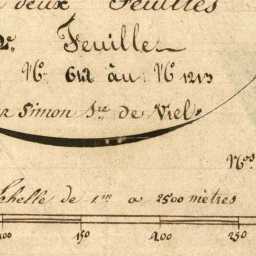 deux Feuilles
2e. Feuille
No. 612 au No 1213
Simon Sre de Viel
Nos
chelle de 1m a 2500 mètres
100 150 200 250